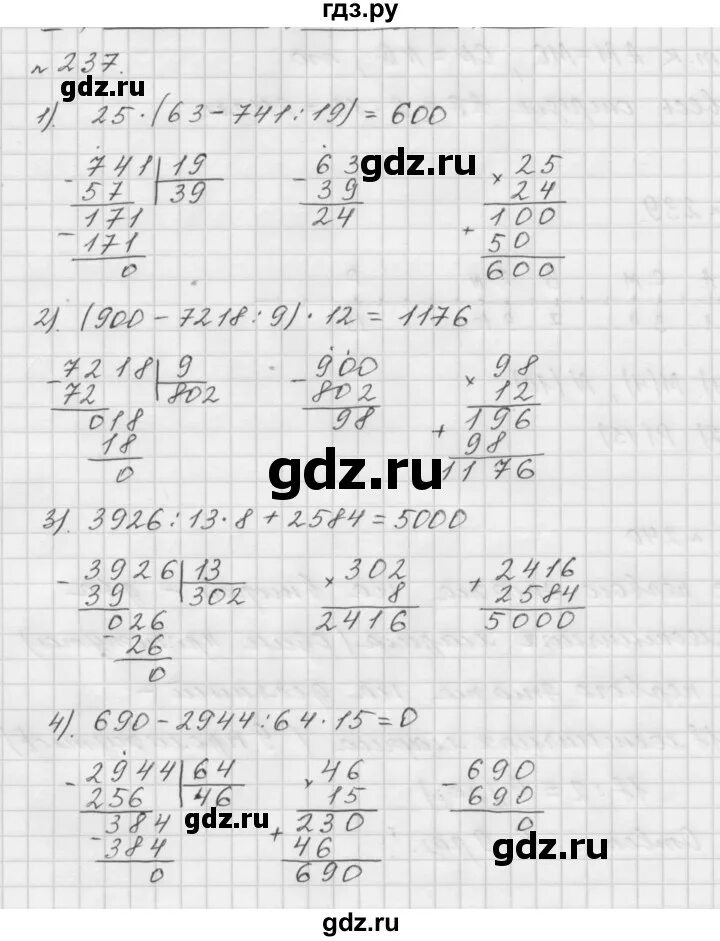 гдз.ру
№ 237.
1). 25 · (63 - 741 : 19) = 600
- 741 | 19
57 | 39
- 171
171
0
- 63
39
24
× 25
24
+ 100
50
600
gdz.ru
2). (900 - 7218 : 9) · 12 = 1176
- 7218 | 9
72 | 802
018
18
0
- 900
802
98
× 98
12
+ 196
98
1176
gdz.ru
3). 3926 : 13 · 8 + 2584 = 5000
- 3926 | 13
39 | 302
026
- 26
0
× 302
8
2416
+ 2416
2584
5000
4). 690 - 2944 : 64 · 15 = 0
- 2944 | 64
256 | 46
384
- 384
0
× 46
15
+ 230
46
690
- 690
690
0
gdz.ru
gdz.ru
gdz.ru
gdz.ru